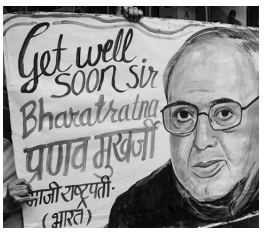 Get well
soon sir
Bharatratna
प्रणव मुखर्जी
माजी राष्ट्रपती.
(भारत)